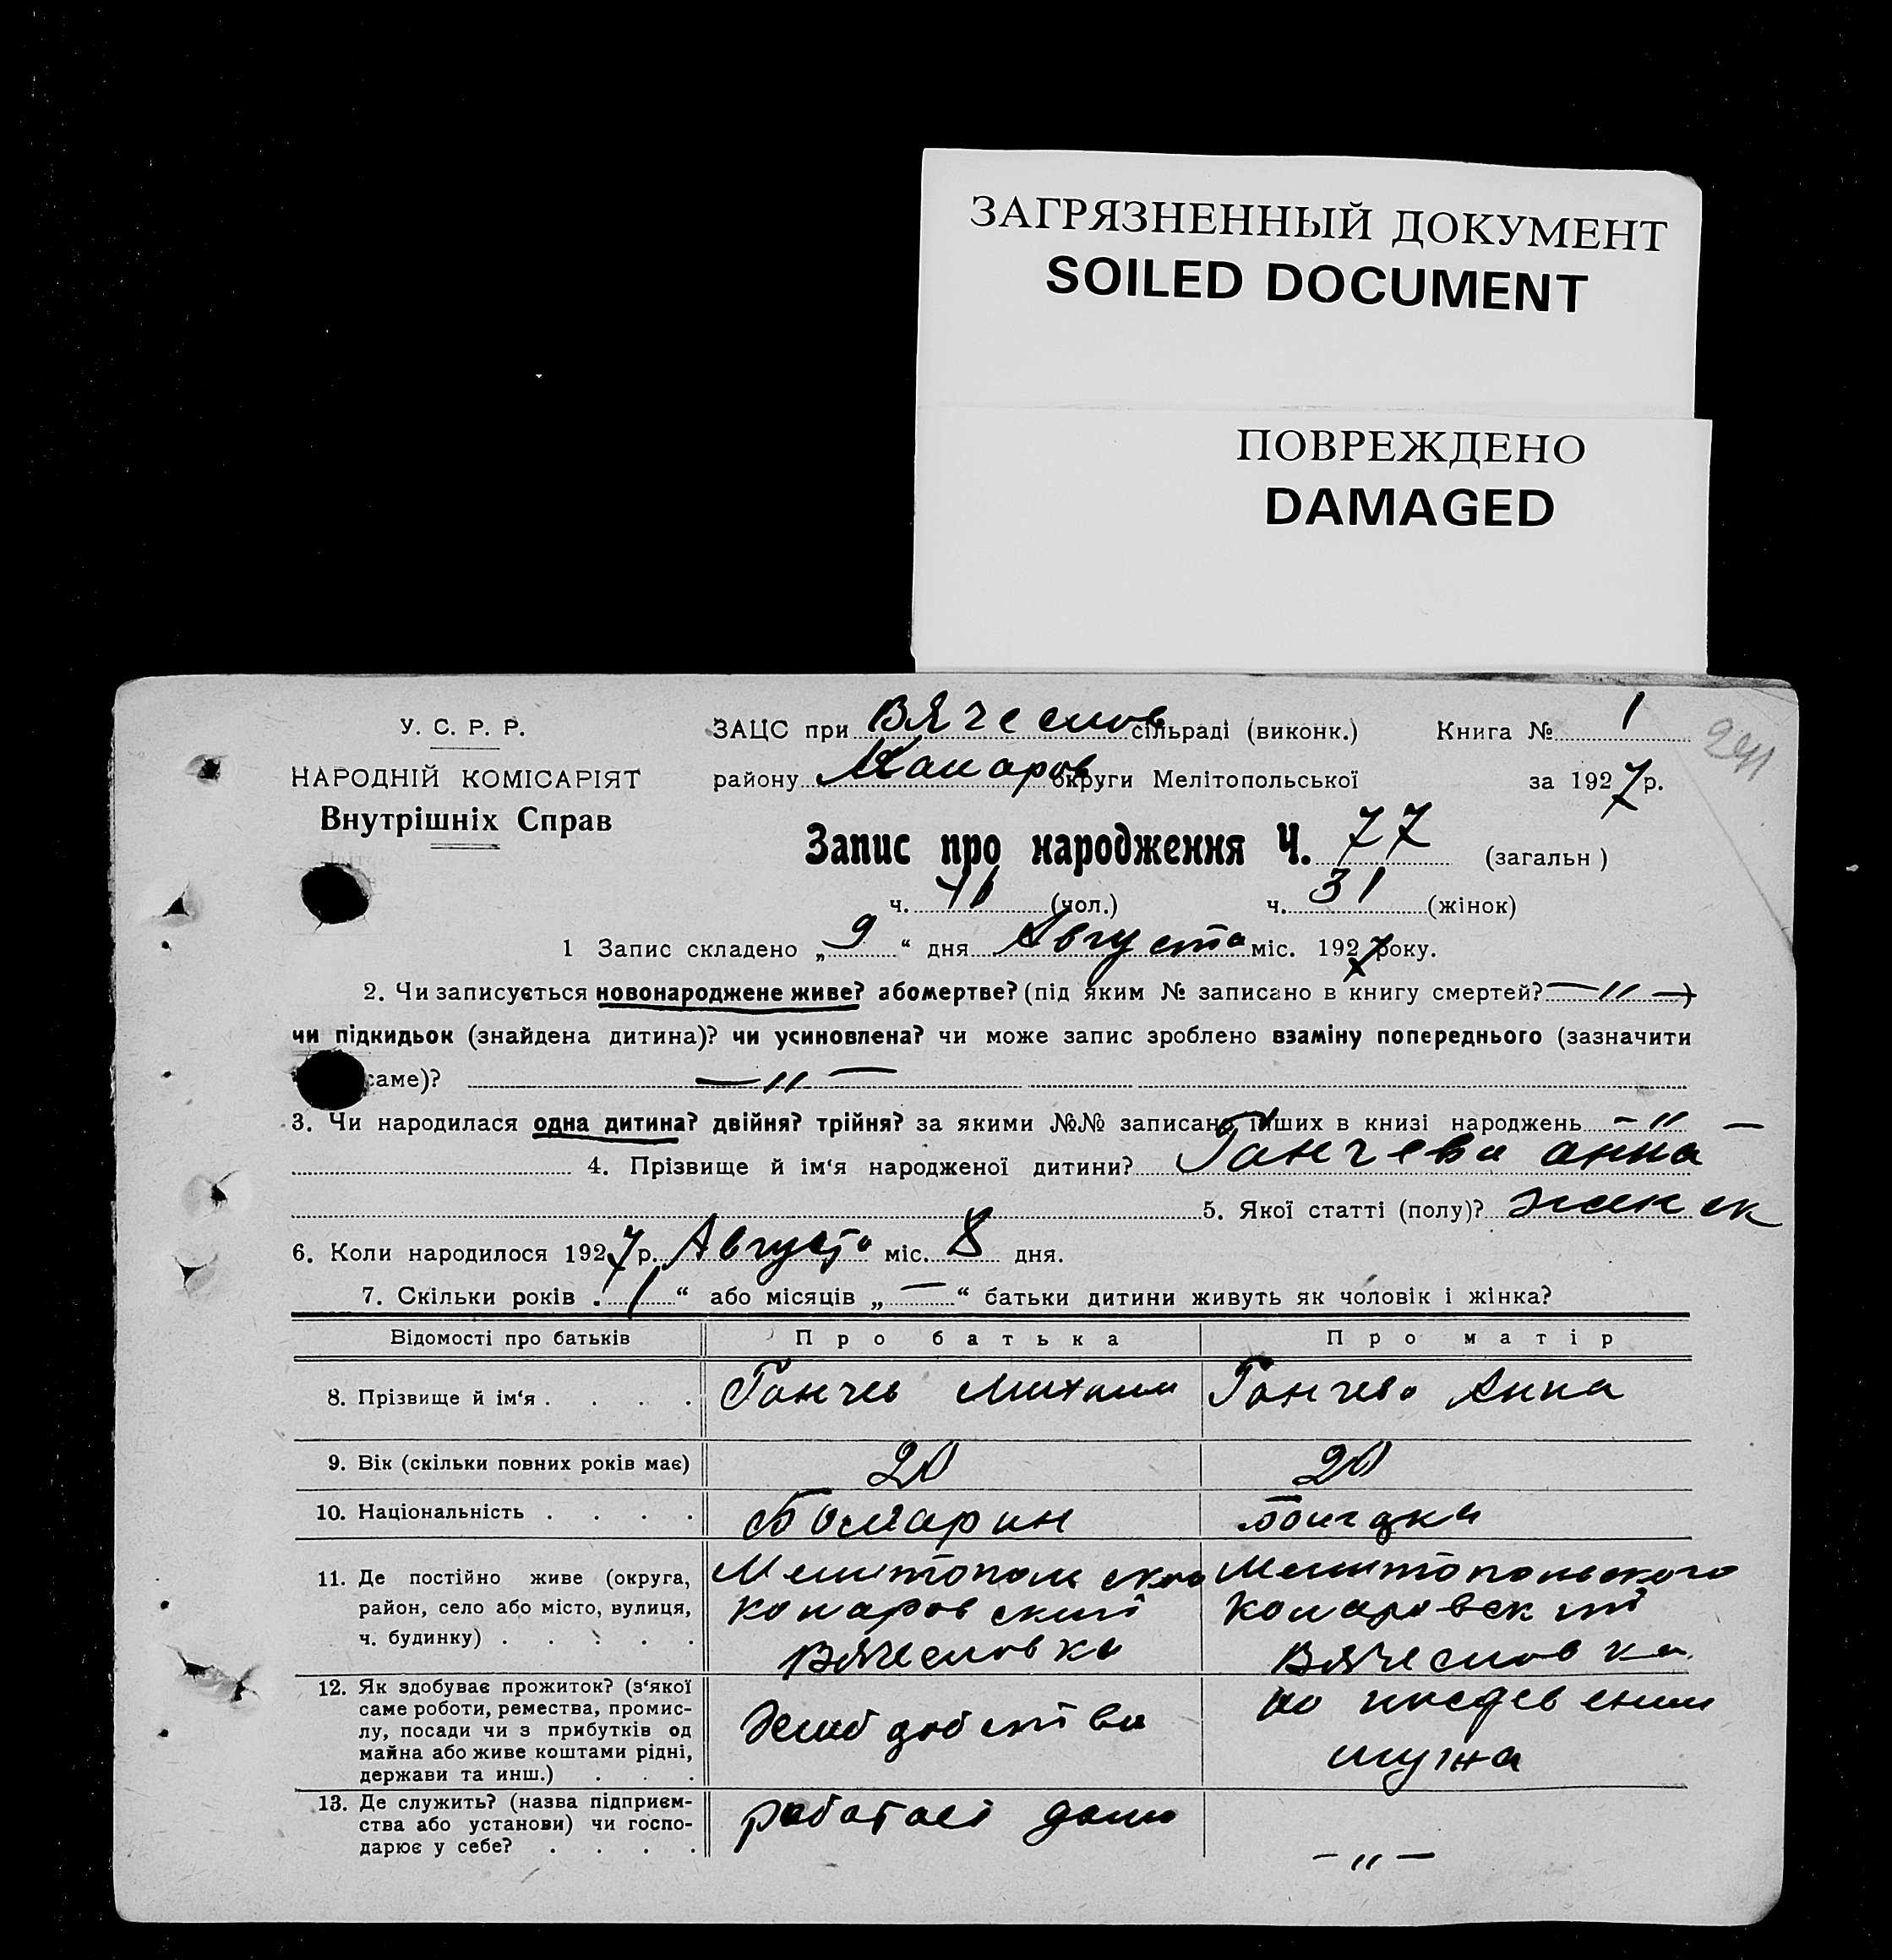 ЗАГРЯЗНЕННЫЙ ДОКУМЕНТ
SOILED DOCUMENT
ПОВРЕЖДЕНО
DAMAGED
У. С. Р. Р.
НАРОДНІЙ КОМІСАРІЯТ
Внутрішніх Справ
ЗАЦС при Вячеслов сільраді (виконк.) Книга № 1
району округи Мелітопольської за 1927 р.
Запис про народження Ч. 77 (загальн )
ч. (чол.) ч. 31 (жінок)
1 Запис складено „ 9 “ дня Августа міс. 1927 року.
2. Чи записується новонароджене живе? абомертве? (під яким № записано в книгу смертей? — " —)
чи підкидьок (знайдена дитина)? чи усиновлена? чи може запис зроблено взаміну попереднього (зазначити
саме)? — " —
3. Чи народилася одна дитина? двійня? трійня? за якими №№ записано інших в книзі народжень — " —
4. Прізвище й ім‘я народженої дитини? Ганчева анна
5. Якої статті (полу)?
6. Коли народилося 1927 р. Августа міс. 8 дня.
7. Скільки років „ 1 “ або місяців „ — “ батьки дитини живуть як чоловік і жінка?
Відомості про батьків Про батька Про матір
8. Прізвище й ім‘я . . . . Ганчев Михаил Ганчева Анна
9. Вік (скільки повних років має) 20 20
10. Національність . . . . Болгарин
11. Де постійно живе (округа, район, село або місто, вулиця, ч. будинку) . . . . .
Мелитопольского Мелитопольского
Комаровский Комаровский
Вячесловка Вячесловка
12. Як здобуває прожиток? (з‘якої саме роботи, ремества, промислу, посади чи з прибутків од майна або живе коштами рідні, держави та инш.) . . .
мужа
13. Де служить? (назва підприємства або установи) чи господарює у себе? . . . .
дома — " —